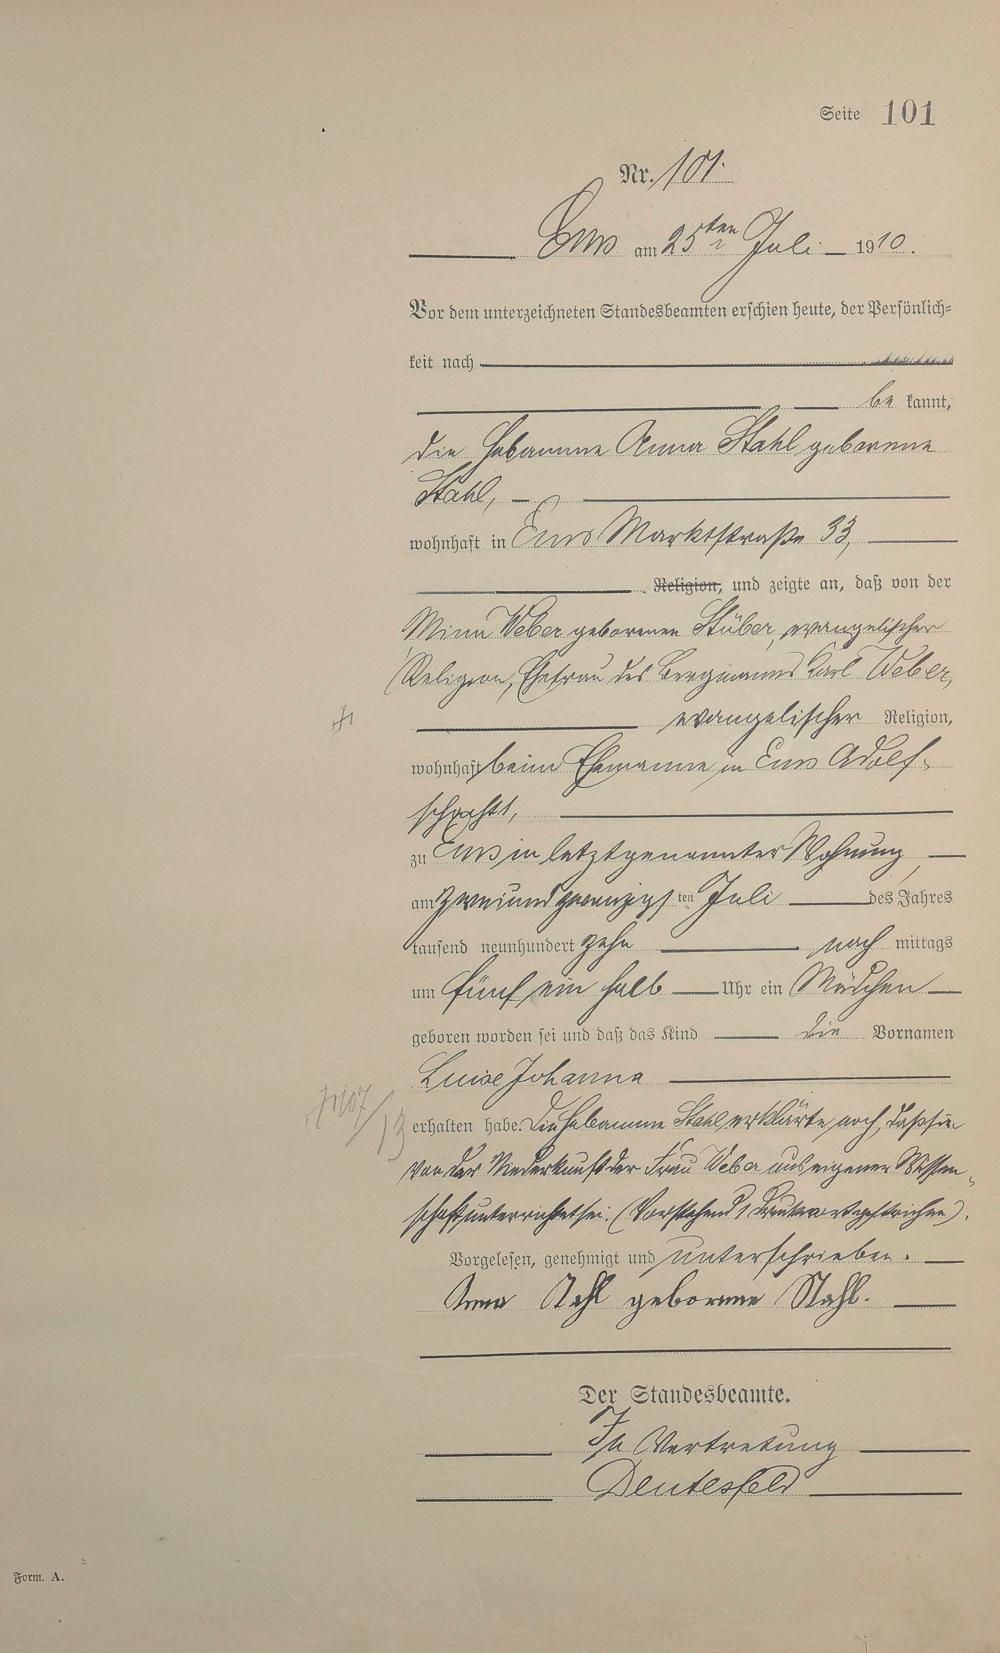 Seite 101
Nr. 101.
Ems am 25ten Juli 1910.
Vor dem unterzeichneten Standesbeamten erschien heute, der Persönlich=
keit nach
be kannt,
die Hebamme Anna Stahl geborene
Stahl,
wohnhaft in Ems Marktstraße 33,
Religion, und zeigte an, daß von der
Minna Weber geborenen Stüber, evangelischer
Religion, Ehefrau des Bergmanns Karl Weber,
evangelischer Religion,
wohnhaft beim Ehemanne in Ems Adolf-
schacht,
zu Ems in letztgenannter Wohnung,
am zweiundzwanzigsten Juli des Jahres
tausend neunhundert zehn nach mittags
um fünf ein halb Uhr ein Mädchen
geboren worden sei und daß das Kind die Vornamen
Luise Johanna
erhalten habe. Die Hebamme Stahl erklärte noch, daß sie
von der Niederkunft der Frau Weber aus eigener Wissen-
schaft unterrichtet sei. (Vorstehend 1 Druckwort gestrichen).
Vorgelesen, genehmigt und unterschrieben.
Anna Stahl geborene Stahl.
Der Standesbeamte.
In Vertretung
Form. A.